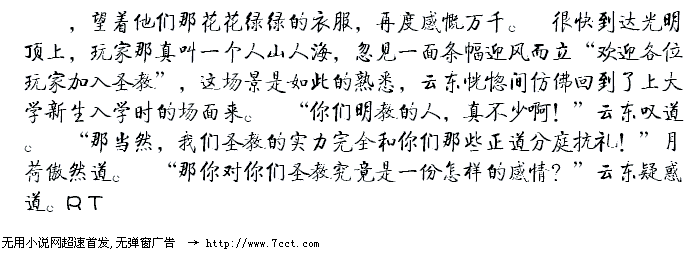 ，望着他们那花花绿绿的衣服，再度感慨万千。 很快到达光明
顶上，玩家那真叫一个人山人海，忽见一面条幅迎风而立“欢迎各位
玩家加入圣教”，这场景是如此的熟悉，云东恍惚间仿佛回到了上大
学新生入学时的场面来。 “你们明教的人，真不少啊！”云东叹道
。 “那当然，我们圣教的实力完全和你们那些正道分庭抗礼！”月
荷傲然道。 “那你对你们圣教究竟是一份怎样的感情？”云东疑惑
道。ＲＴ
无用小说网超速首发,无弹窗广告 → http://www.7cct.com